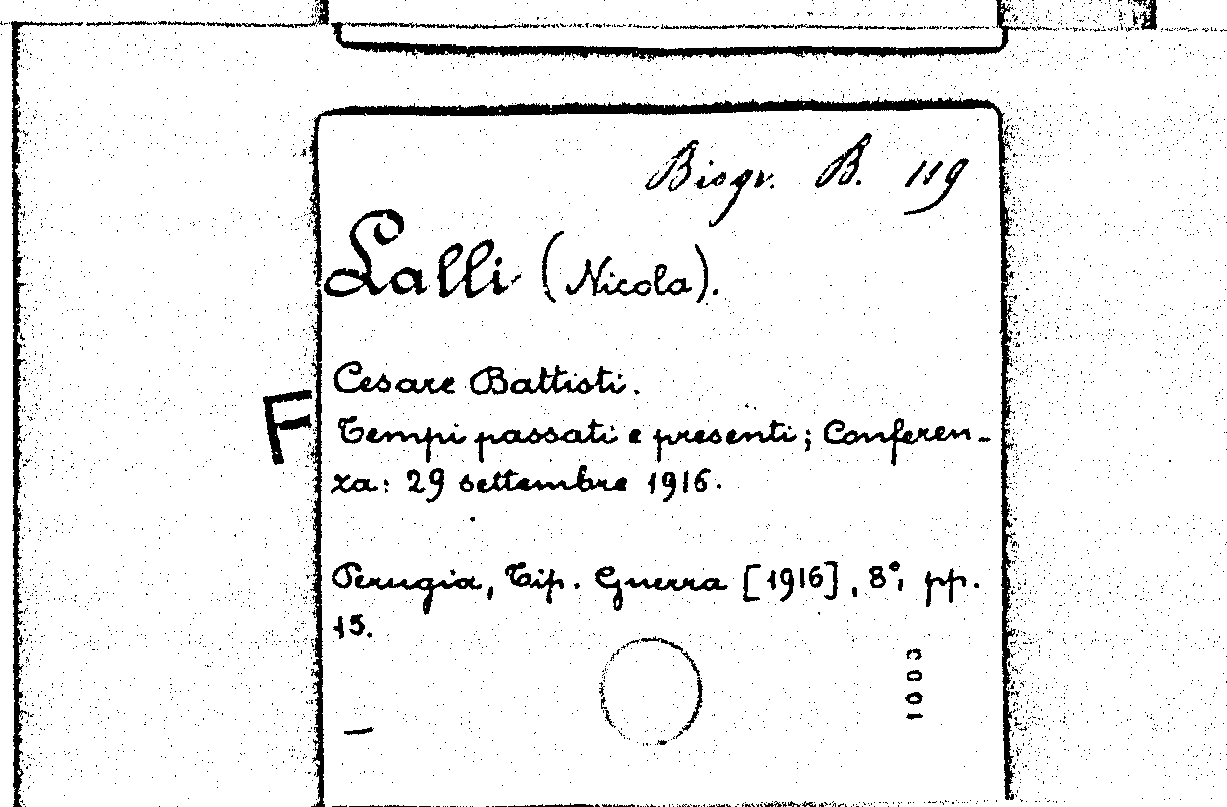 Biogr. B. 119
Lalli (Nicola).
Cesare Battisti.
F
Tempi passati e presenti; Conferen-
za: 29 settembre 1916.
Perugia, Tip. Guerra [1916], 8°, pp.
15.
1003